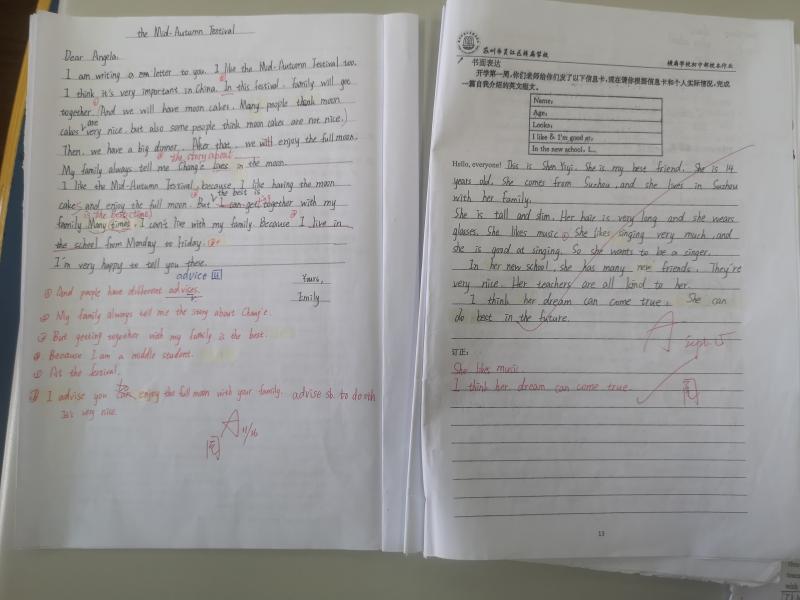 the Mid-Autumn Festival
Dear Angela.
I am writing a letter to you. I like the Mid-Autumn Festival too.
I think it's very important in China. In this festival, family will get
together. And we will have moon cakes. Many people think moon
cakes are very nice, but also some people think moon cakes are not nice.
Then, we have a big dinner. After that, we will enjoy the full moon.
the story about
My family always tell me Chang'e lives in the moon.
I like the Mid-Autumn Festival, because I like having the moon
the best is
cakes and enjoy the full moon. But I can get together with my
is the best (time)
family Many times. I can't live with my family. Because I live in
the school from Monday to Friday.
I'm very happy to tell you these.
Yours,
Emily
advice
① And people have different advices.
② My family always tell me the story about Chang'e.
③ But getting together with my family is the best.
④ Because I am a middle student.
⑤ At the festival.
I advise you can to enjoy the full moon with your family. advise sb. to do sth
It's very nice.
A 11/16
阅
苏州市吴江区横扇学校
横扇学校初中部校本作业
书面表达
开学第一周,你们老师给你们发了以下信息卡,现在请你根据信息卡和个人实际情况,完成
一篇自我介绍的英文短文。
Name:
Age:
Looks:
I like & I'm good at:
In the new school, I...
Hello, everyone! This is Shen Yiyi. She is my best friend. She is 14
years old. She comes from Suzhou, and she lives in Suzhou
with her family.
She is tall and slim. Her hair is very long and she wears
glasses. She likes music. She likes singing very much, and
she is good at singing. So she wants to be a singer.
In her new school, she has many new friends. They're
very nice. Her teachers are all kind to her.
I think her dream can come true. She can
do best in the future.
A
Sept 15
订正:
She likes music.
I think her dream can come true.
阅
13